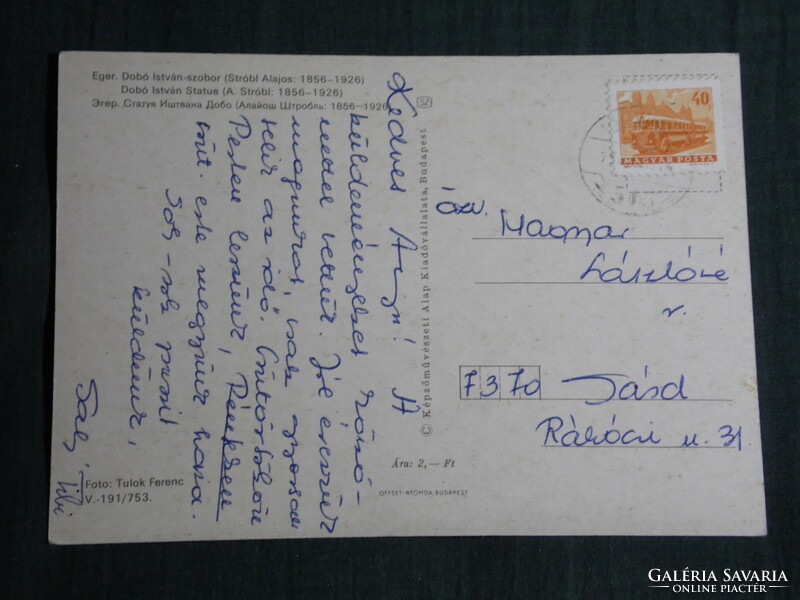 Eger. Dobó István-szobor (Stróbl Alajos: 1856–1926)
Dobó István Statue (A. Stróbl: 1856–1926)
Эгер. Статуя Иштвана Добо (Алайош Штробль: 1856–1926)
Kedves Anyu! A
küldeményeket köszö-
nettel vettük. Jól érezzük
magunkat, csak gyorsan
telik az idő. Csütörtökön
Pesten leszünk, Pénteken
este megyünk haza.
Sok-sok puszit
küldünk,
Tibi
Foto: Tulok Ferenc
V.-191/753.
© Képzőművészeti Alap Kiadóvállalata, Budapest
Ára: 2,— Ft
OFFSET-NYOMDA, BUDAPEST
40
MAGYAR POSTA
özv. Magyar
Lászlóné
r.
7370 Sásd
Rákóczi u. 31.
GALÉRIA SAVARIA
ONLINE PIACTÉR